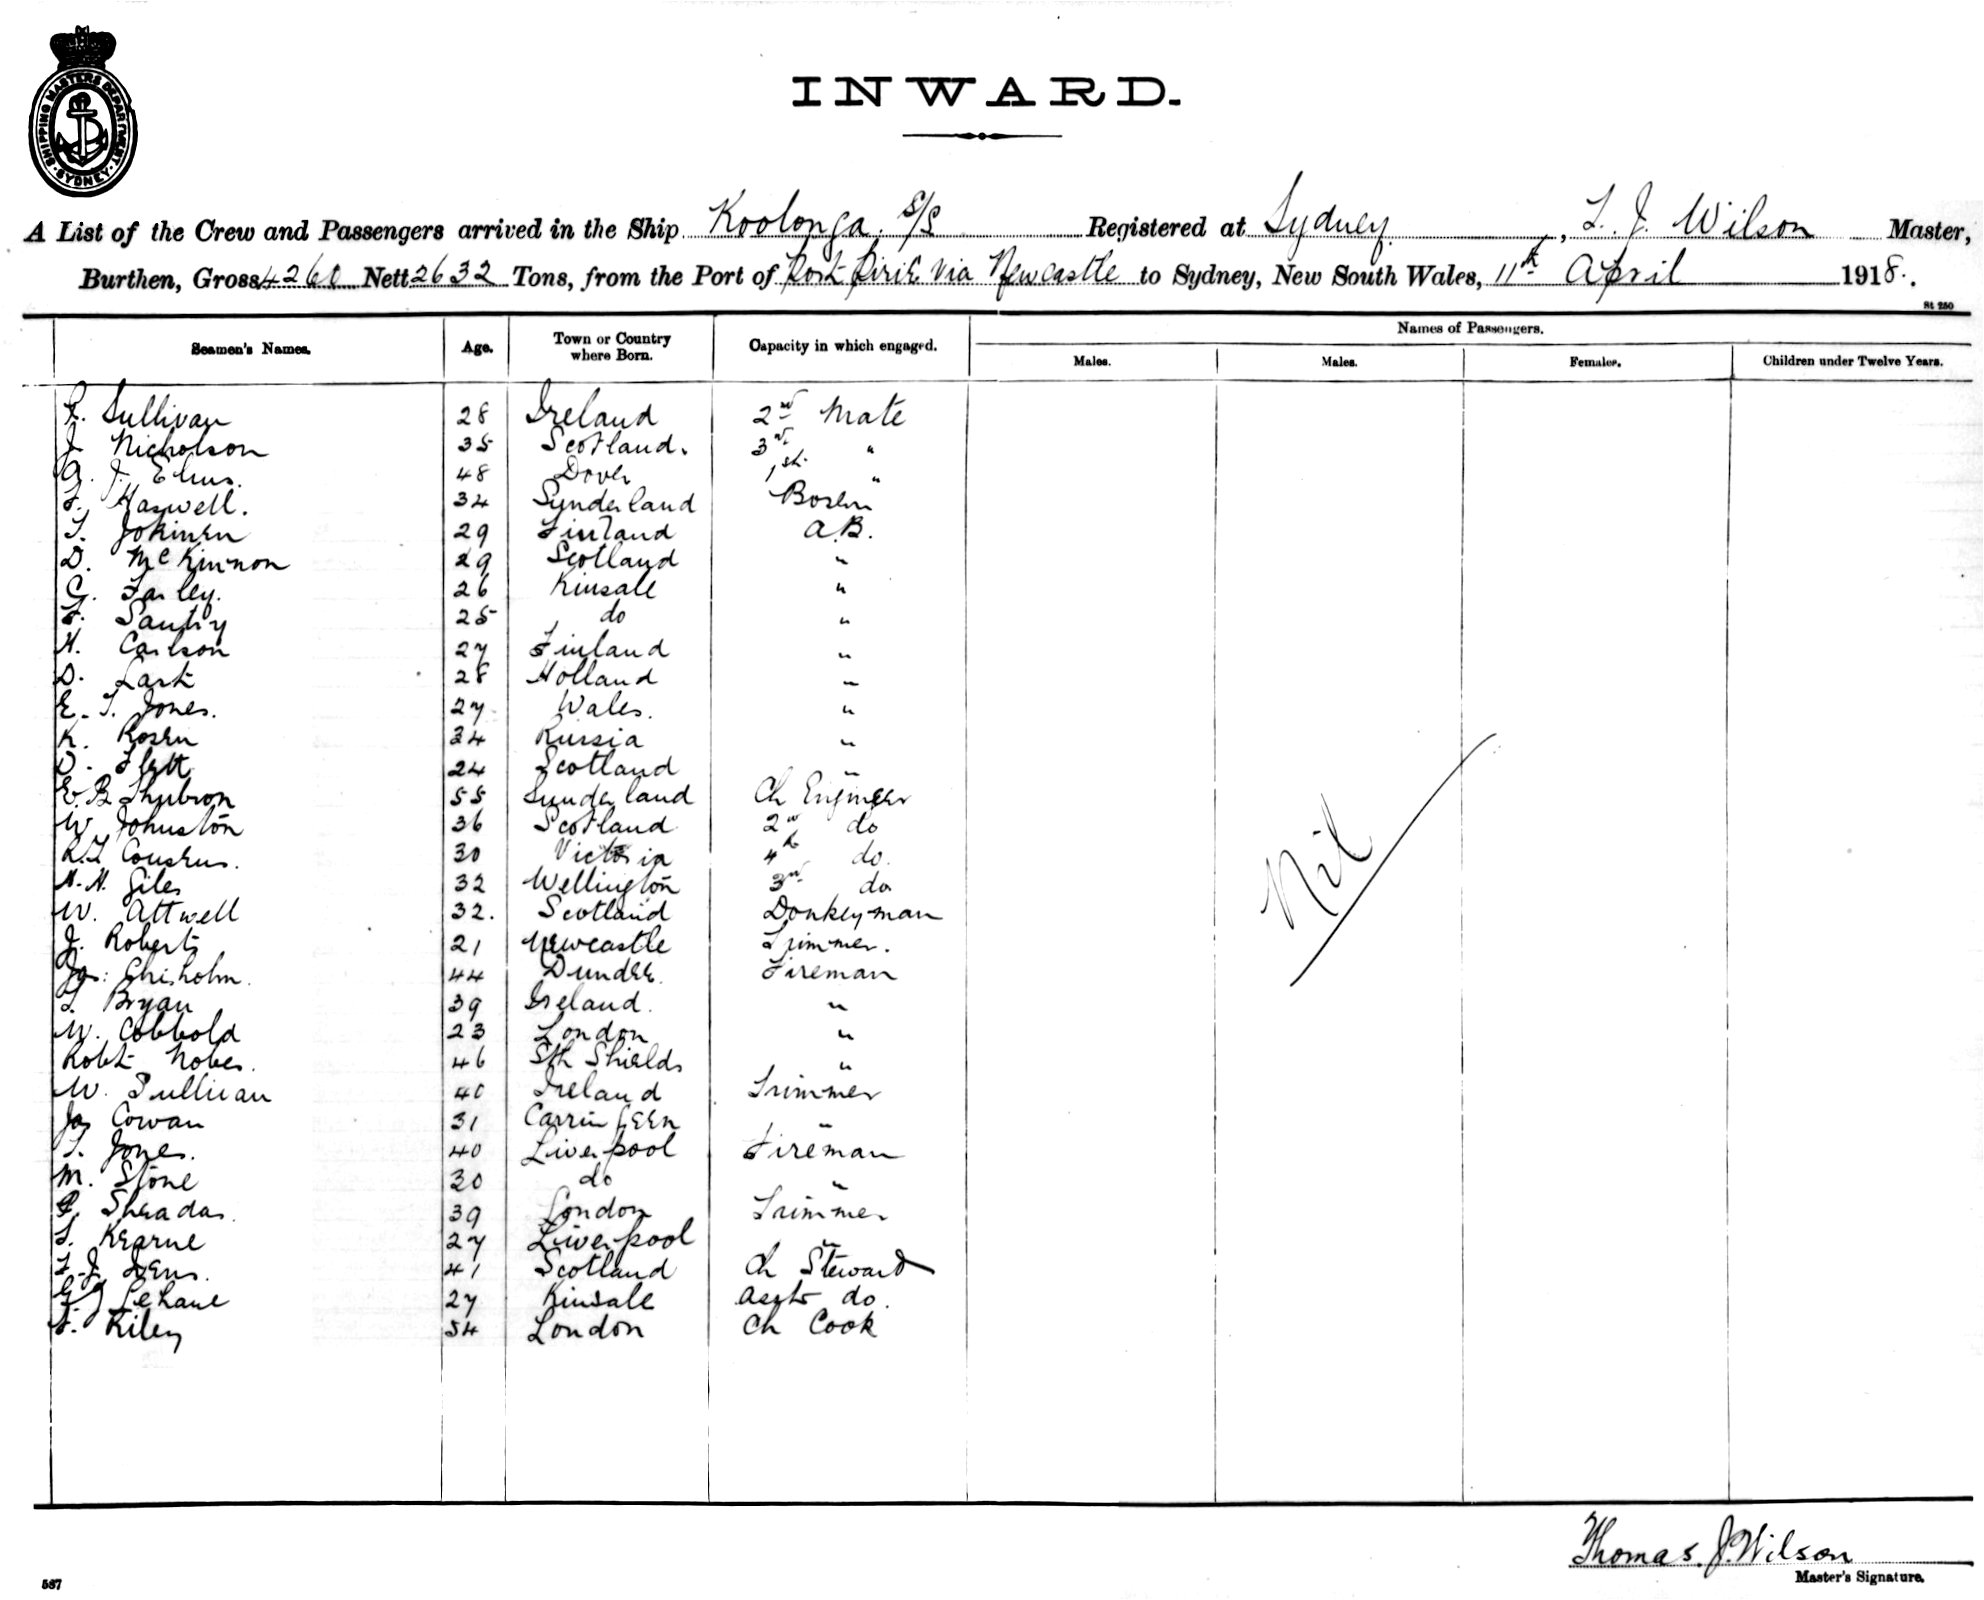 SHIPPING MASTERS DEPARTMENT · SYDNEY ·
INWARD.
A List of the Crew and Passengers arrived in the Ship Koolonga S/S Registered at Sydney, T. J. Wilson Master,
Burthen, Gross 4260 Nett 2632 Tons, from the Port of Port Pirie via Newcastle to Sydney, New South Wales, 11th April 1918.
St 250
Seamen's Names. Age. Town or Country where Born. Capacity in which engaged. Names of Passengers.
Males. Males. Females. Children under Twelve Years.
Sullivan 28 Ireland 2nd Mate
J. Nicholson 35 Scotland. 3rd "
48 Dover 1st "
Haswell. 34 Sunderland Bosen
Jokinen 29 Finland A.B.
D. McKinnon 29 Scotland "
C. Farley. 26 Kinsale "
Santry 25 do "
H. Carlson 27 Finland "
D. Last 28 Holland "
E. T. Jones. 27 Wales. "
K. Rosen 34 Russia "
D. Flett 24 Scotland "
E. B. Thubron 55 Sunderland Ch Engineer
W. Johnston 36 Scotland 2nd do
30 Victoria 4th do.
Giles 32 Wellington 3rd do
W. Attwell 32. Scotland Donkeyman
J. Roberts 21 Newcastle Trimmer.
Jas: Chisholm. 44 Dundee. Fireman
Bryan 39 Ireland. "
W. Cobbold 23 London "
Robt Nobes. 46 Sth Shields "
W. Sullivan 40 Ireland Trimmer
Jas Cowan 31 "
T. Jones. 40 Liverpool Fireman
M. Stone 30 do "
39 London Trimmer
Kearne 27 Liverpool "
41 Scotland Ch Steward
Lehane 27 Kinsale Asst do.
Riley 54 London Ch Cook
Nil
Thomas. J. Wilson
Master's Signature.
587